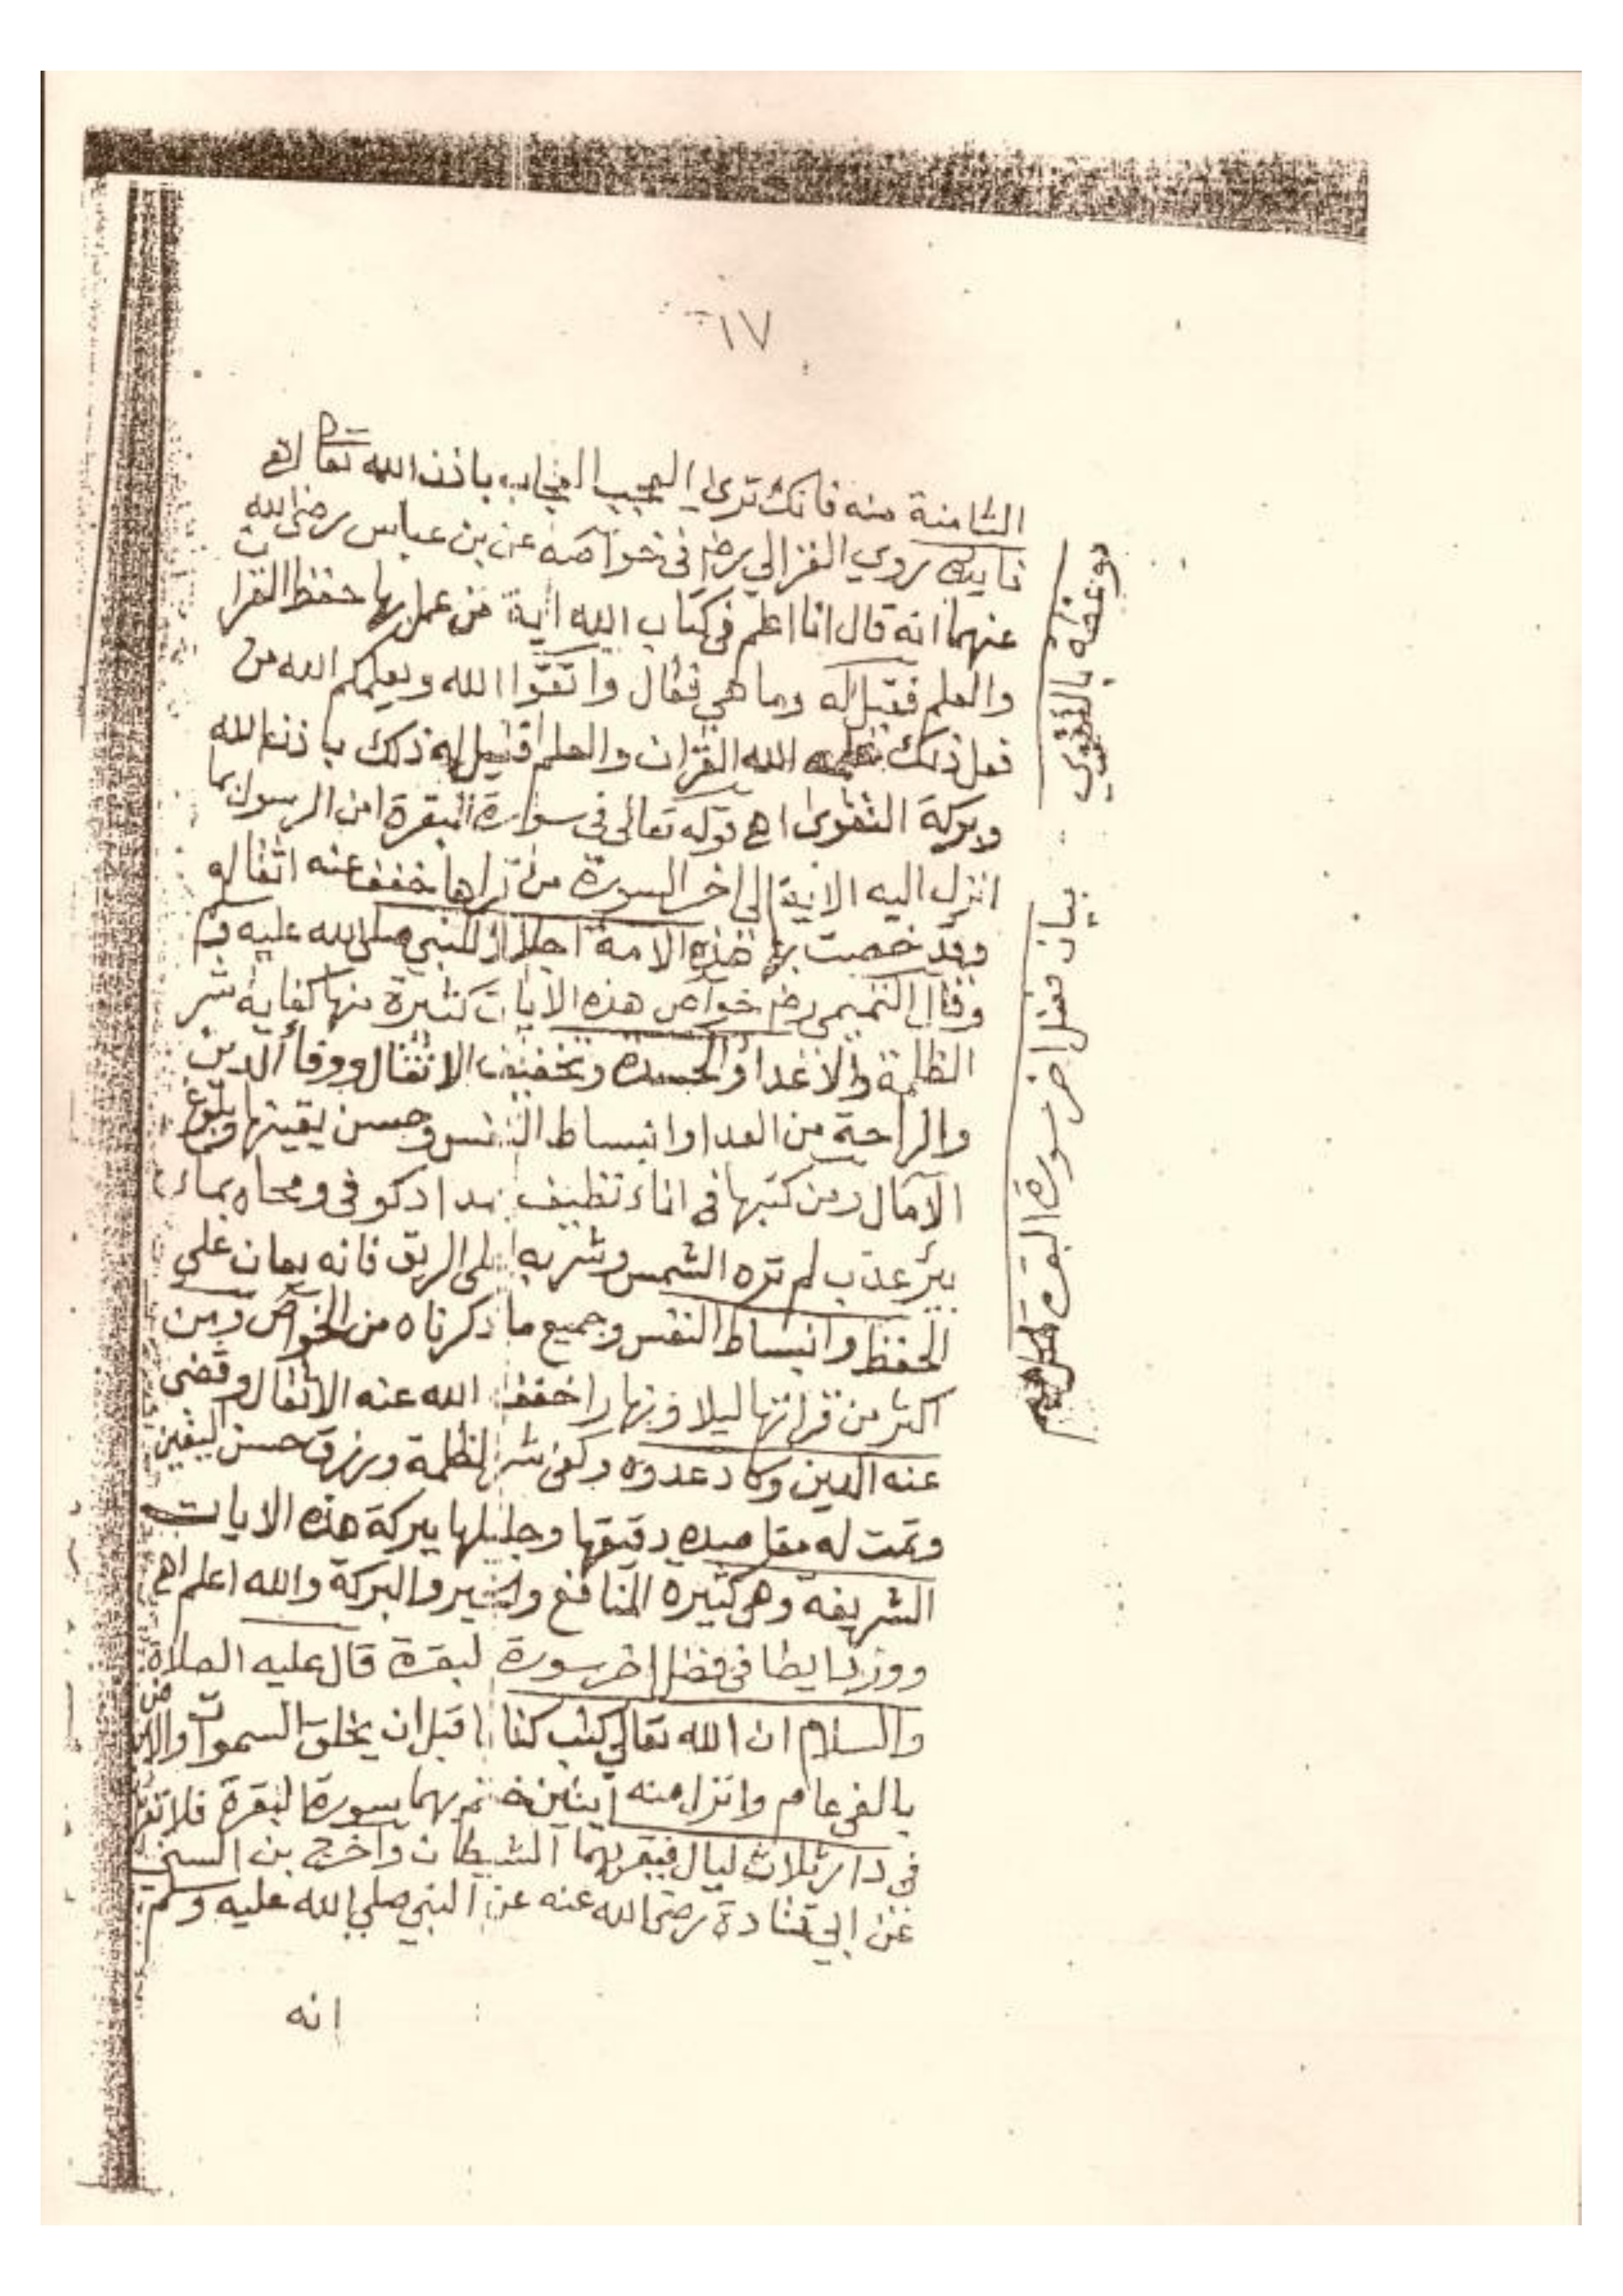 ١٧
الثامنة منه فانك تري العجب العجاب باذن الله تعالى اهـ
روي الغزالي رضه في خواصه عن بن عباس رضي الله
عنهما انه قال انا اعلم في كتاب الله اية من عمل بها حفظ القران
والعلم فقيل له وما هي فقال واتقوا الله ويعلمكم الله من
فعل ذلك الله القران والعلم ذلك باذن الله
وبركة التقوى اهـ قوله تعالى في سورة البقرة امن الرسول بما
انزل اليه الاية الى اخر السورة من قراها خفف عنه اثقاله
وقد خصت بها هذه الامة اجلالا للنبي صلى الله عليه وسلم
وقال التميمي رضه خواص هذه الايات كثيرة منها كفاية شر
الظلمة والاعدا والحسدة وتخفيف الاثقال ووفأ الدين
والراحة من العدا وانبساط النفس وحسن يقينها وبلوغ
الآمال ومن كتبها في اناء نظيف بمداد كوفي ومحاه بماء
بئر عذب لم تره الشمس وشربه على الريق فانه يعان على
الحفظ وانبساط النفس وجميع ما ذكرناه من الخواص ومن
اكثر من قراتها ليلا ونهارا خفف الله عنه الاثقال وقضي
عنه الدين وكاد عدوه وكفي شر الظلمة ورزق حسن اليقين
وتمت له مقاصده دقيقها وجليلها ببركة هذه الايات
الشريفة وهي كثيرة المنافع والخير والبركة والله اعلم اهـ
وورد ايضا في فضل اخر سورة لبقرة قال عليه الصلاة
والسلام ان الله تعالي كتب كتابا قبل ان يخلق السموات والارض
بالفي عام وانزل منه ايتين ختم بهما سورة البقرة فلا تقرا
في دار ثلاث ليال فيقربها الشيطان واخرج بن السني
عن ابي قتادة رضي الله عنه عن النبي صلي الله عليه وسلم
انه
بالتقوي
بيان فضل اخر سورة البقرة